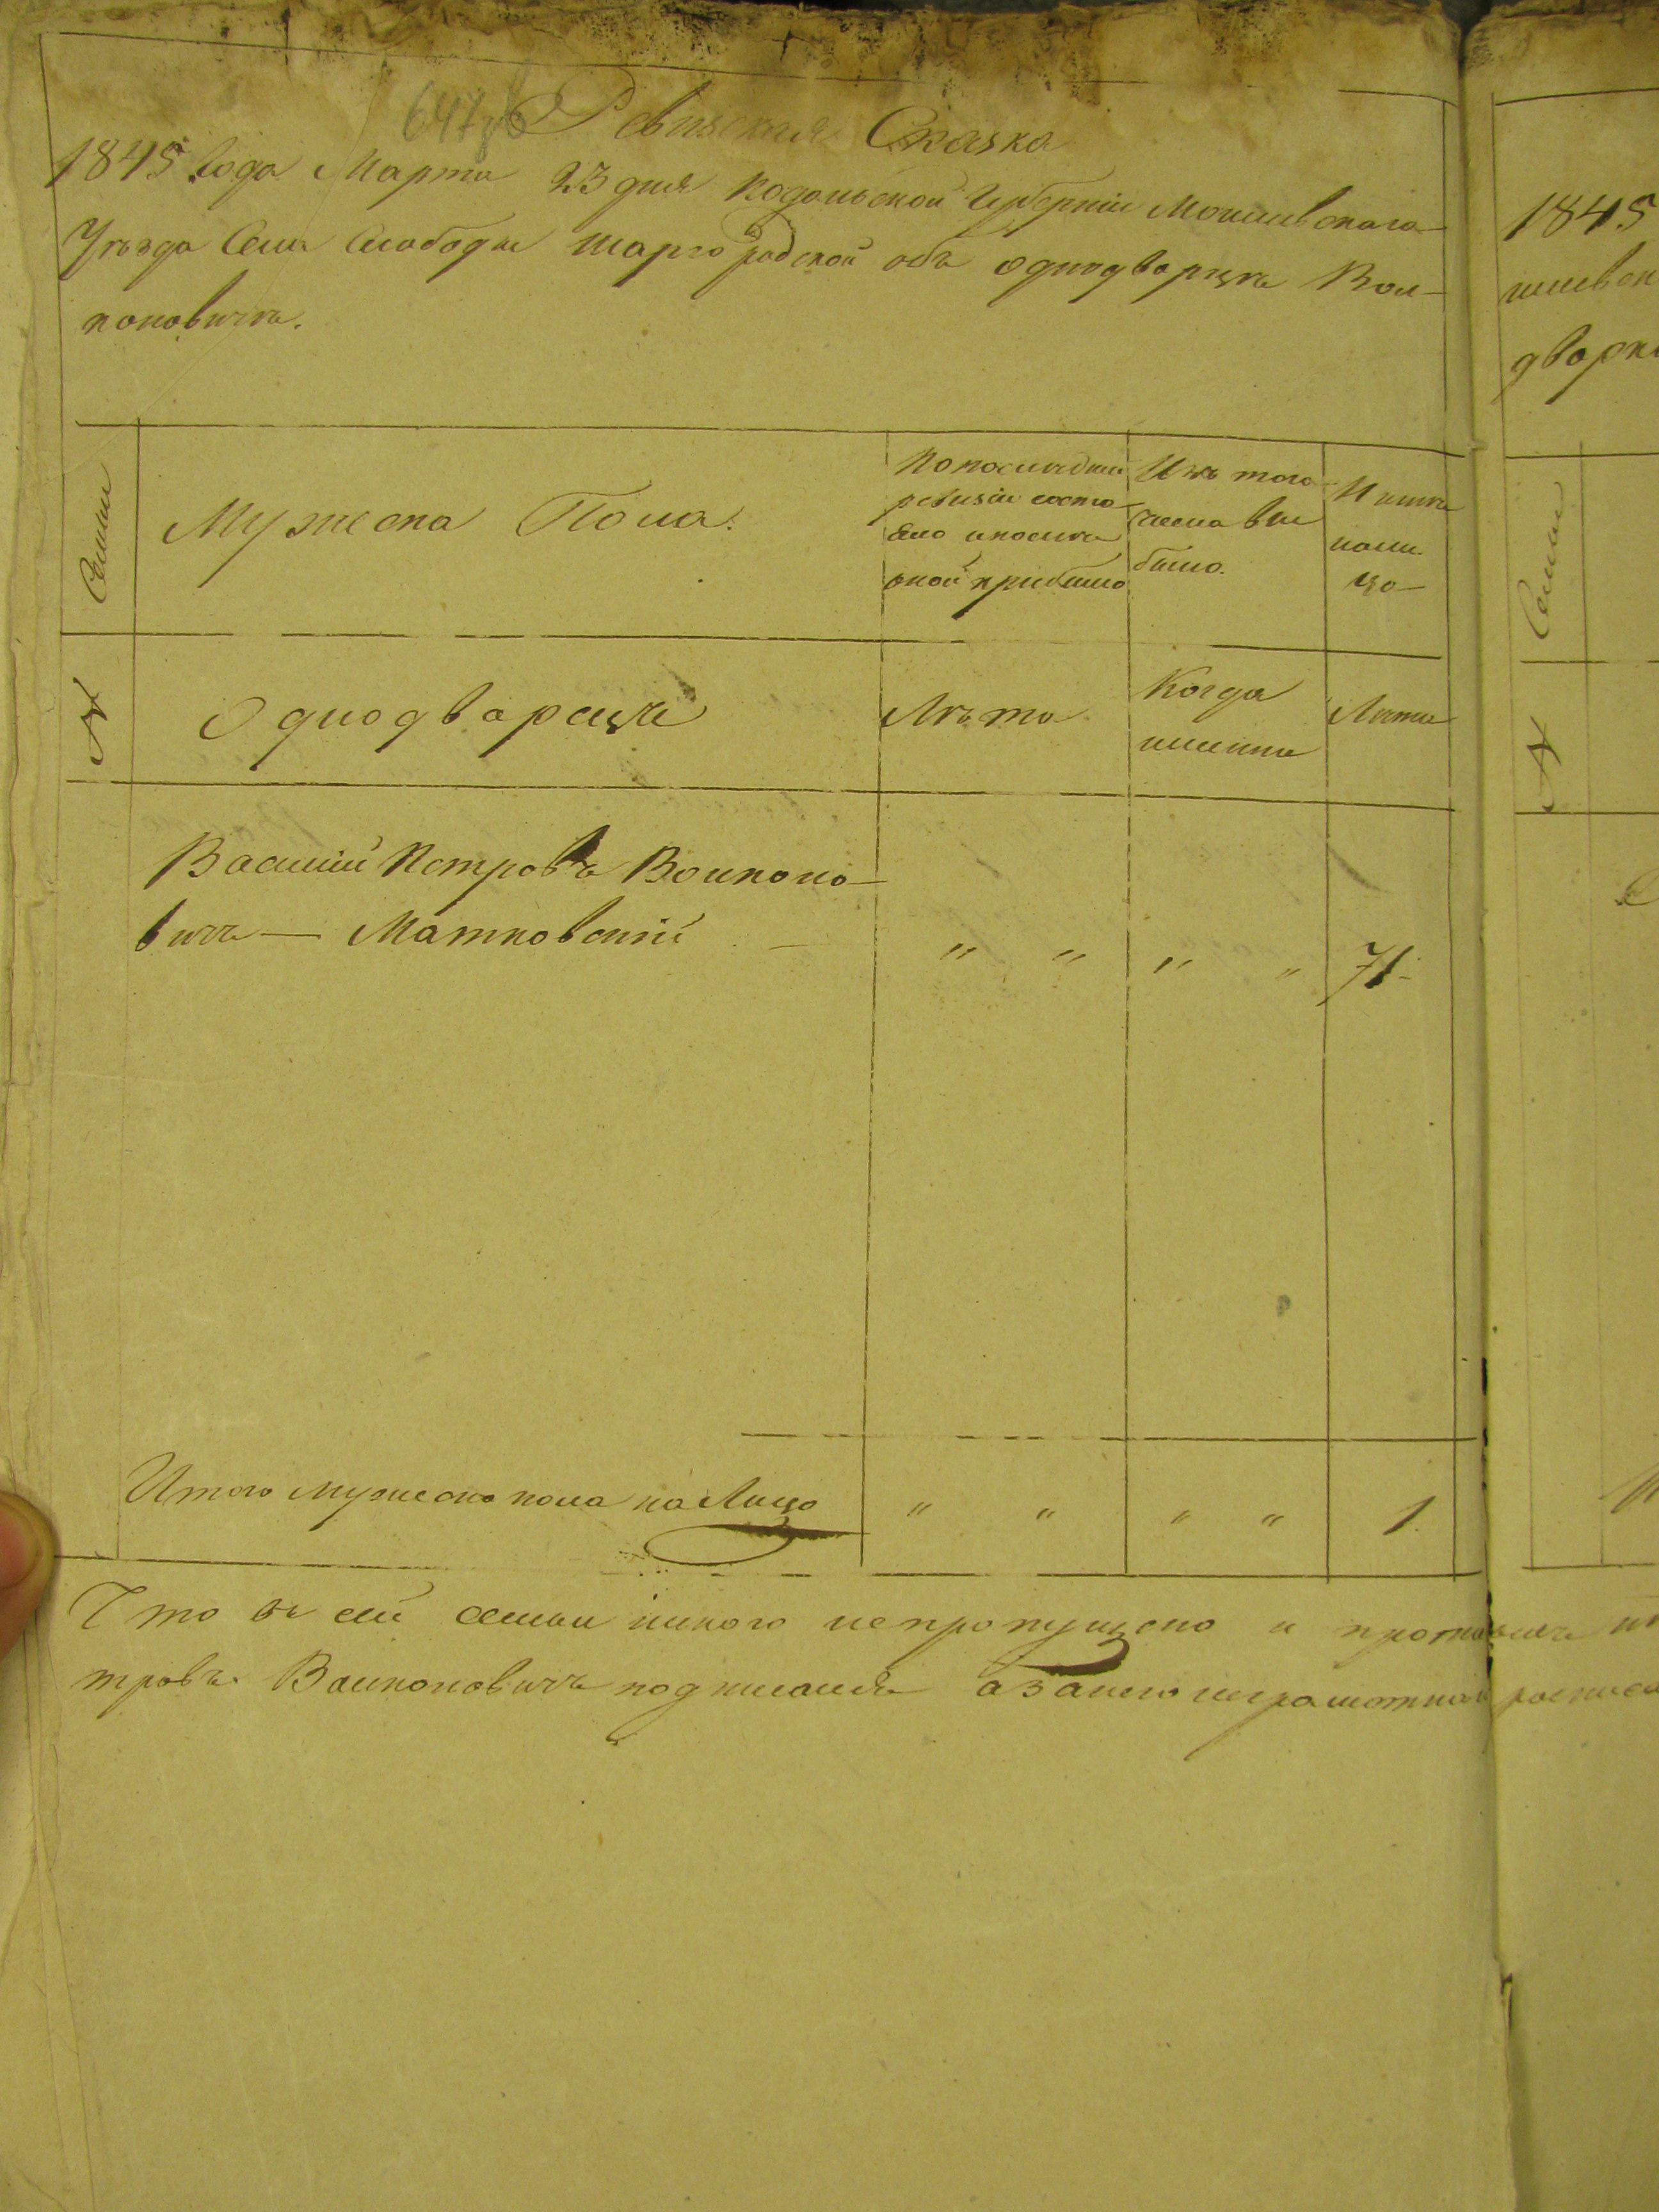 647
Ревизская Сказка
1845 года Марта 23 дня Подольской Губерніи Могилевскаго
Уѣзда Села Слободы Шаргородской объ однодворцѣ Вол-
коновичѣ.
Семьи
Мужеска Пола.
По последней
ревизіи состо
яло и после
оной прибыло
Изъ того
числа вы
было.
И нынѣ
на ли-
цо
№
Однодворецъ
Лѣта
Когда
именно
Лѣта
Василий Петровъ Волконо-
вичъ — Матковский
" " " " 71
Итого мужеска пола на Лицо " " " " 1.
Что въ сей семьи никого не пропущено и
тровъ Волконовичъ подписался а за него неграмотнаго
1845
дворц
Семьи
№